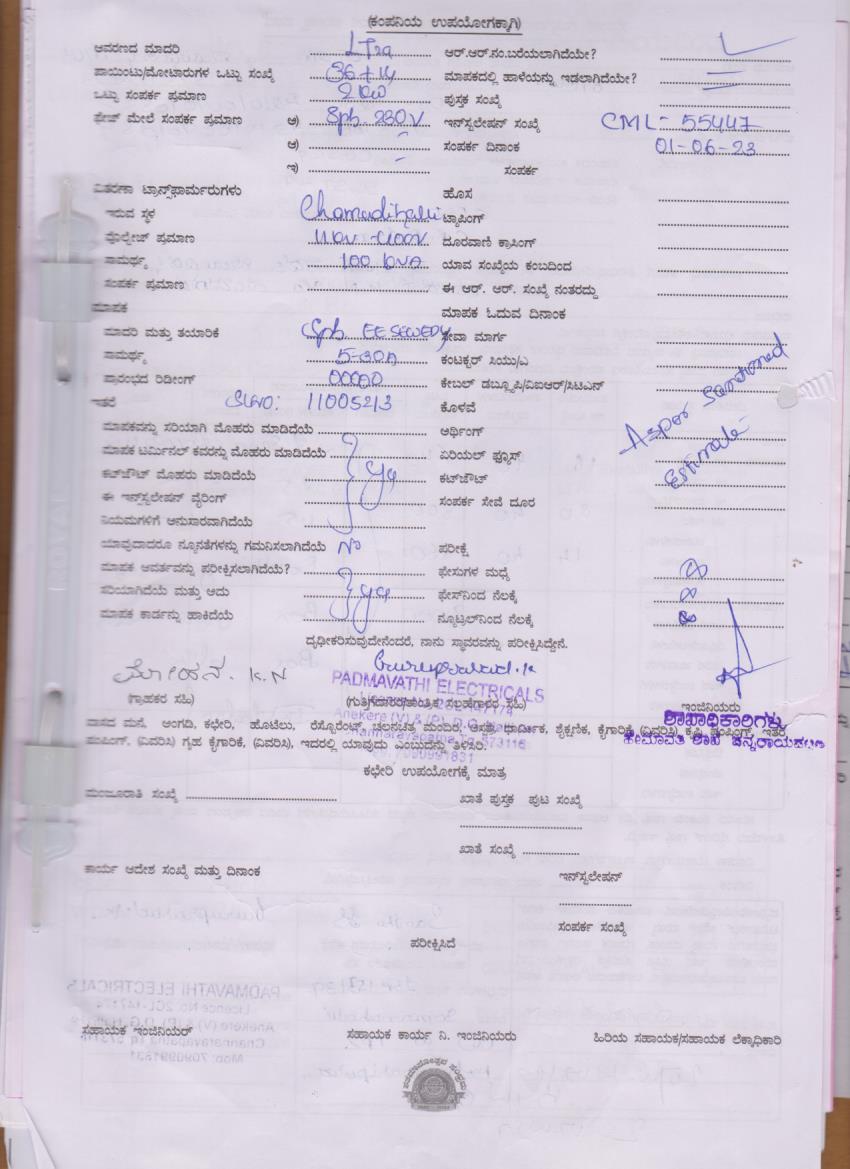 (ಕಂಪನಿಯ ಉಪಯೋಗಕ್ಕಾಗಿ)
ಆವರಣದ ಮಾದರಿ LT2a ಆರ್.ಆರ್.ನಂ.ಬರೆಯಲಾಗಿದೆಯೇ?
ಪಾಯಿಂಟು/ಮೋಟಾರುಗಳ ಒಟ್ಟು ಸಂಖ್ಯೆ 36+14 ಮಾಪಕದಲ್ಲಿ ಹಾಳೆಯನ್ನು ಇಡಲಾಗಿದೆಯೇ?
ಒಟ್ಟು ಸಂಪರ್ಕ ಪ್ರಮಾಣ 2 KW ಪುಸ್ತಕ ಸಂಖ್ಯೆ
ಫೇಜ್ ಮೇಲೆ ಸಂಪರ್ಕ ಪ್ರಮಾಣ ಅ) Sph. 230V ಇನ್‌ಸ್ಟಲೇಷನ್ ಸಂಖ್ಯೆ CML-55447
ಆ) ಸಂಪರ್ಕ ದಿನಾಂಕ 01-06-23
ಇ) ಸಂಪರ್ಕ
ವಿತರಣಾ ಟ್ರಾನ್ಸ್‌ಫಾರ್ಮರುಗಳು ಹೊಸ
ಇರುವ ಸ್ಥಳ ಟ್ಯಾಪಿಂಗ್
ವೋಲ್ಟೇಜ್ ಪ್ರಮಾಣ ದೂರವಾಣಿ ಕ್ರಾಸಿಂಗ್
ಸಾಮರ್ಥ್ಯ 100 KVA ಯಾವ ಸಂಖ್ಯೆಯ ಕಂಬದಿಂದ
ಸಂಪರ್ಕ ಪ್ರಮಾಣ ಈ ಆರ್. ಆರ್. ಸಂಖ್ಯೆ ನಂತರದ್ದು
ಮಾಪಕ ಮಾಪಕ ಓದುವ ದಿನಾಂಕ
ಮಾದರಿ ಮತ್ತು ತಯಾರಿಕೆ Sph. EESEWEDY ಸೇವಾ ಮಾರ್ಗ
ಸಾಮರ್ಥ್ಯ 5-30A ಕಂಟಕ್ಟರ್ ಸಿಯು/ಎ
ಪ್ರಾರಂಭದ ರಿಡೀಂಗ್ 00000 ಕೇಬಲ್ ಡಬ್ಲ್ಯೂಪಿ/ವಿಐಆರ್/ಸಿಟಿಎನ್
ಇತರೆ SLNO: 11005213 ಕೊಳವೆ
ಮಾಪಕವನ್ನು ಸರಿಯಾಗಿ ಮೊಹರು ಮಾಡಿದೆಯೆ ಅರ್ಥಿಂಗ್ Asper Sanctioned
ಮಾಪಕ ಟರ್ಮಿನಲ್ ಕವರನ್ನು ಮೊಹರು ಮಾಡಿದೆಯೆ ಏರಿಯಲ್ ಫ್ಯೂಸ್ Estimate
ಕಟ್‌ಔಟ್ ಮೊಹರು ಮಾಡಿದೆಯೆ ಕಟ್‌ಔಟ್
ಈ ಇನ್‌ಸ್ಟಲೇಷನ್ ವೈರಿಂಗ್ ಸಂಪರ್ಕ ಸೇವೆ ದೂರ
ನಿಯಮಗಳಿಗೆ ಅನುಸಾರವಾಗಿದೆಯೆ
ಯಾವುದಾದರೂ ನ್ಯೂನತೆಗಳನ್ನು ಗಮನಿಸಲಾಗಿದೆಯೆ No ಪರೀಕ್ಷೆ
ಮಾಪಕ ಆವರ್ತವನ್ನು ಪರೀಕ್ಷಿಸಲಾಗಿದೆಯೆ? ಫೇಸುಗಳ ಮಧ್ಯೆ
ಸರಿಯಾಗಿದೆಯೆ ಮತ್ತು ಅದು ಫೇಸ್‌ನಿಂದ ನೆಲಕ್ಕೆ
ಮಾಪಕ ಕಾರ್ಡನ್ನು ಹಾಕಿದೆಯೆ ನ್ಯೂಟ್ರಲ್‌ನಿಂದ ನೆಲಕ್ಕೆ
ದೃಢೀಕರಿಸುವುದೇನೆಂದರೆ, ನಾನು ಸ್ಥಾವರವನ್ನು ಪರೀಕ್ಷಿಸಿದ್ದೇನೆ.
ಮೋಹನ. K.N
PADMAVATHI ELECTRICALS
(ಗ್ರಾಹಕರ ಸಹಿ) (ಗುತ್ತಿಗೆದಾರರ/ತಾಂತ್ರಿಕ ಸಲಹೆಗಾರರ ಸಹಿ) ಇಂಜಿನಿಯರು
ಶಾಖಾಧಿಕಾರಿಗಳು
ವಾಸದ ಮನೆ, ಅಂಗಡಿ, ಕಛೇರಿ, ಹೊಟೇಲು, ರೆಸ್ಟೋರೆಂಟ್, ಚಲನಚಿತ್ರ ಮಂದಿರ, ಆಸ್ಪತ್ರೆ, ಧಾರ್ಮಿಕ, ಶೈಕ್ಷಣಿಕ, ಕೈಗಾರಿಕೆ, (ವಿವರಿಸಿ) ಕೃಷಿ ಪಂಪಿಂಗ್, ಇತರೆ
ಪಂಪಿಂಗ್, (ವಿವರಿಸಿ) ಗೃಹ ಕೈಗಾರಿಕೆ, (ವಿವರಿಸಿ), ಇದರಲ್ಲಿ ಯಾವುದು ಎಂಬುದನ್ನು ತಿಳಿಸಿರಿ. ಹೇಮಾವತಿ ಶಾಖೆ ಚನ್ನರಾಯಪಟ್ಟಣ
ಕಛೇರಿ ಉಪಯೋಗಕ್ಕೆ ಮಾತ್ರ
ಮಂಜೂರಾತಿ ಸಂಖ್ಯೆ ಖಾತೆ ಪುಸ್ತಕ ಪುಟ ಸಂಖ್ಯೆ
ಖಾತೆ ಸಂಖ್ಯೆ
ಕಾರ್ಯ ಆದೇಶ ಸಂಖ್ಯೆ ಮತ್ತು ದಿನಾಂಕ ಇನ್‌ಸ್ಟಲೇಷನ್
ಸಂಪರ್ಕ ಸಂಖ್ಯೆ
ಪರೀಕ್ಷಿಸಿದೆ
ಸಹಾಯಕ ಇಂಜಿನಿಯರ್ ಸಹಾಯಕ ಕಾರ್ಯ ನಿ. ಇಂಜಿನಿಯರು ಹಿರಿಯ ಸಹಾಯಕ/ಸಹಾಯಕ ಲೆಕ್ಕಾಧಿಕಾರಿ